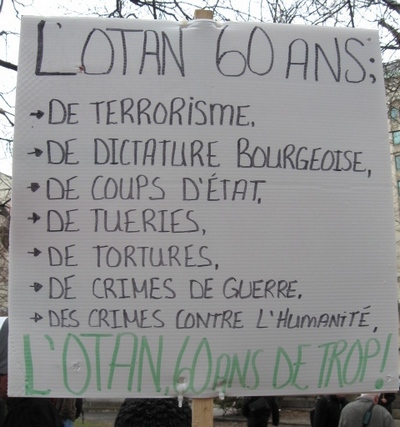 L'OTAN 60 ANS;
→DE TERRORISME,
→DE DICTATURE BOURGEOISE,
→DE COUPS D'ÉTAT,
→DE TUERIES,
→DE TORTURES,
→DE CRIMES DE GUERRE,
→DES CRIMES CONTRE L'HUMANITÉ,
L'OTAN, 60 ANS DE TROP!